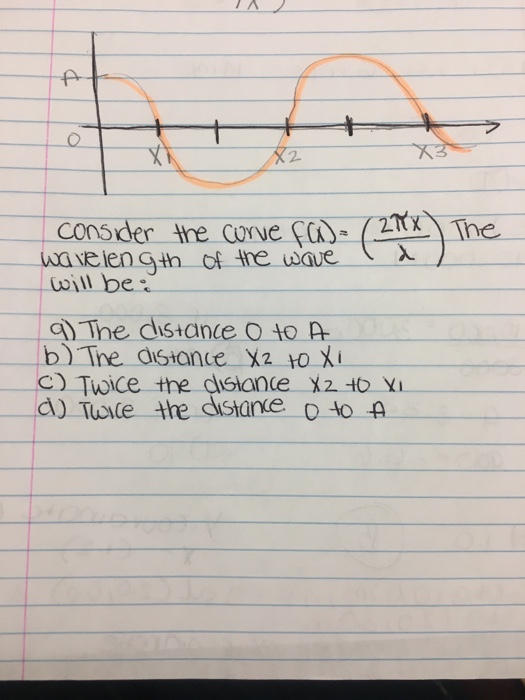 A
O
X1
X2
X3
consider the curve f(x) = (2πx/λ) The
wavelength of the wave
will be:
a) The distance O to A
b) The distance X2 to X1
c) Twice the distance X2 to X1
d) Twice the distance O to A